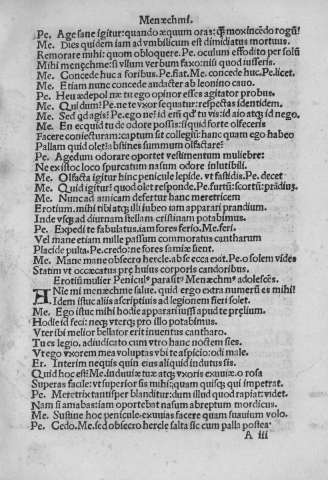 Menæchmi.
Pe. Age sane igitur: quando æquum oras: quam mox incendo rogum?
Me. Dies quidem iam ad vmbilicum est dimidiatus mortuus.
Remorare mihi: quom obloquere. Pe. oculum effodito per solum
Mihi menęchme: si vllum verbum faxo: nisi quod iusseris.
Me. Concede huc a foribus. Pe. fiat. Me. concede huc. Pe. licet.
Me. Etiam nunc concede andacter ab leonino cauo.
Pe. Heu ædepol næ tu ego opinor esses agitator probus.
Me. Qui dum? Pe. ne te vxor sequatur: respectas identidem.
Me. Sed qd agis? Pe. ego ne? id em̄ qd' tu vis: id aio atqɜ id nego.
Me. En ecquid tu de odore possis: si quid forte olfeceris
Facere coniecturam: captum sit collegiū: hanc quam ego habeo
Pallam quid olet: abstines summum olfactare?
Pe. Agedum odorare oportet vestimentum muliebre:
Ne ex istoc loco spurcatum nasum odore inlutibili.
Me. Olfacta igitur hinc penicule lepide. vt fastidis. Pe. decet
Me. Quid igitur? quod olet responde. Pe. furtū: scortū: prādiuɜ.
Me. Nunc ad amicam defertur hanc meretricem
Erotium. mihi tibi atqɜ illi iubeo iam apparari prandium.
Inde vsqɜ ad diurnam stellam crastinam potabimus.
Pe. Expedite fabulatus. iam fores ferio. Me. feri.
Vel mane etiam mille passum commoratus cantharum
Placide pulta. Pe. credo: ne fores samiæ sient.
Me. Mane mane obsecro hercle. ab se ecca exit. Pe. o solem vides
Statim vt occæcatus pre huius corporis candoribus.
Erotiū mulier Penicul⁹ parasit⁹ Menæchm⁹ adolescēs.
ANime mi menæchme salue. quid ergo extra numerū es mihi?
Idem istuc aliis ascriptiuis ad legionem fieri solet.
Me. Ego istuc mihi hodie apparari iussi apud te prelium.
Hodie id feci: neqɜ vterqɜ pro illo potabimus.
Vter ibi melior bellator erit inuentus cantharo.
Tu es legio, adiudicato cum vtro hanc noctem sies.
Vt ego vxorem mea voluptas vbi te aspicio: odi male.
Er. Interim nequis quin eius aliquid indutus sis.
Quid hoc est? Me. induuiæ tuæ atqɜ vxoris exuuiæ. o rosa
Superas facile: vt superior sis mihi: quam quisqɜ qui impetrat.
Pe. Meretrix tantisper blanditur: dum illud quod rapiat: videt.
Nam si amabas: iam oportebat nasum abreptum mordicus.
Me. Sustine hoc penicule: exuuias facere quam suauium volo.
Pe. Cedo. Me. sed obsecro hercle salta sic cum palla postea
A iii